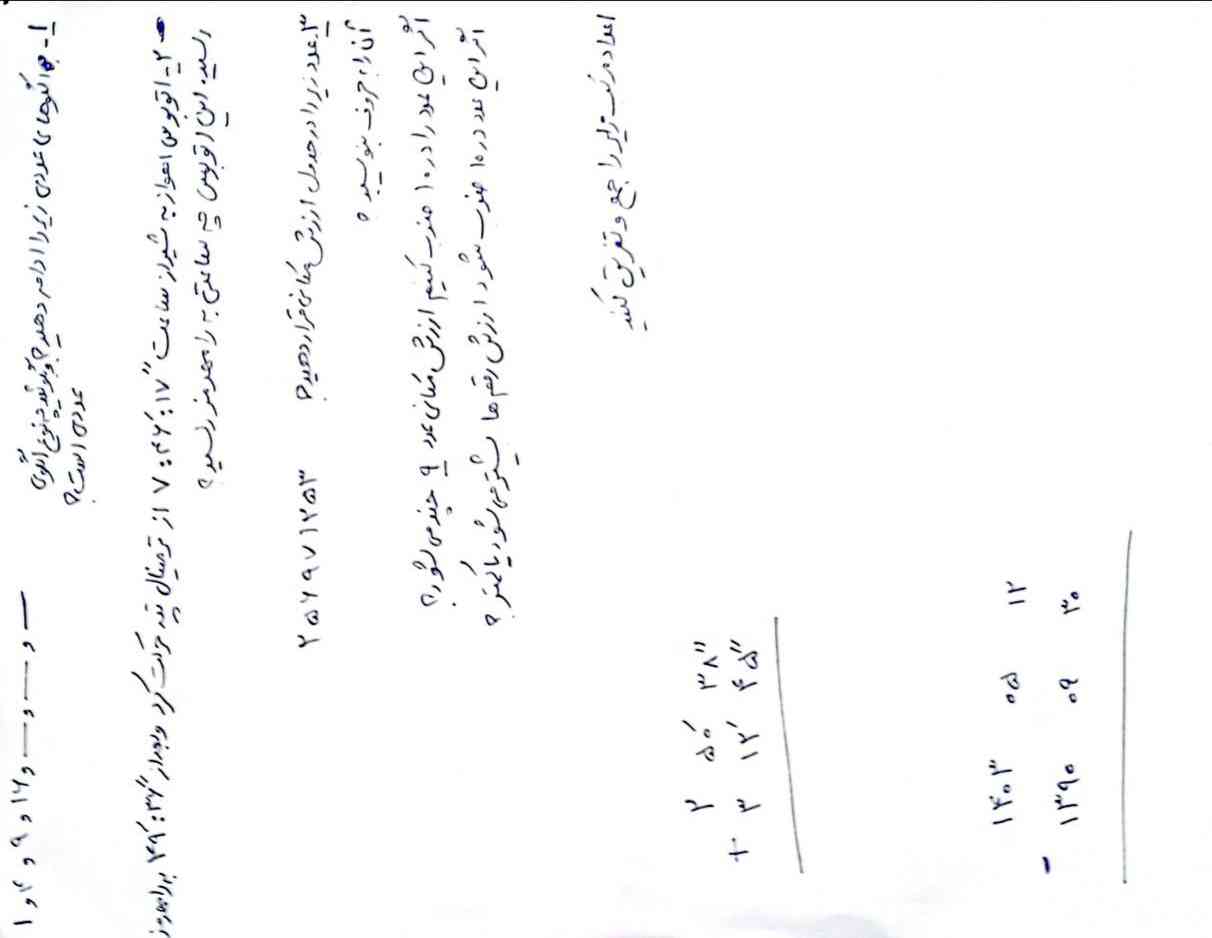 ۱- الگوهای عددی زیر را ادامه دهید و بگوئید چه نوع الگوی
عددی است؟
۱ و ۴ و ۹ و ۱۶ و — و — و —
۲- اتوبوس اهواز به شیراز ساعت ۱۷″ : ۴۶′ : ۷ از ترمینال به حرکت کرد و بعد از ۳۶″ : ۴۹′ به رامهرمز
رسید. این اتوبوس چه ساعتی به رامهرمز رسید؟
۳. عدد زیر را در جدول ارزش مکانی قرار دهید؟ ۲۵۶۹۷۱۲۵۳
آن را به حروف بنویسید؟
اگر این عدد را در ۱۰ ضرب کنیم ارزش مکانی عدد ۹ چند می شود؟
اگر این عدد در ۱۰ ضرب شود ارزش رقم ها بیشتر می شود یا کمتر؟
اعداد مرکب زیر را جمع و تفریق کنید
۲ ۵۰′ ۳۸″
+ ۳ ۱۲′ ۴۵″
۱۴۰۳ ۰۵ ۱۲
- ۱۳۹۰ ۰۹ ۳۰